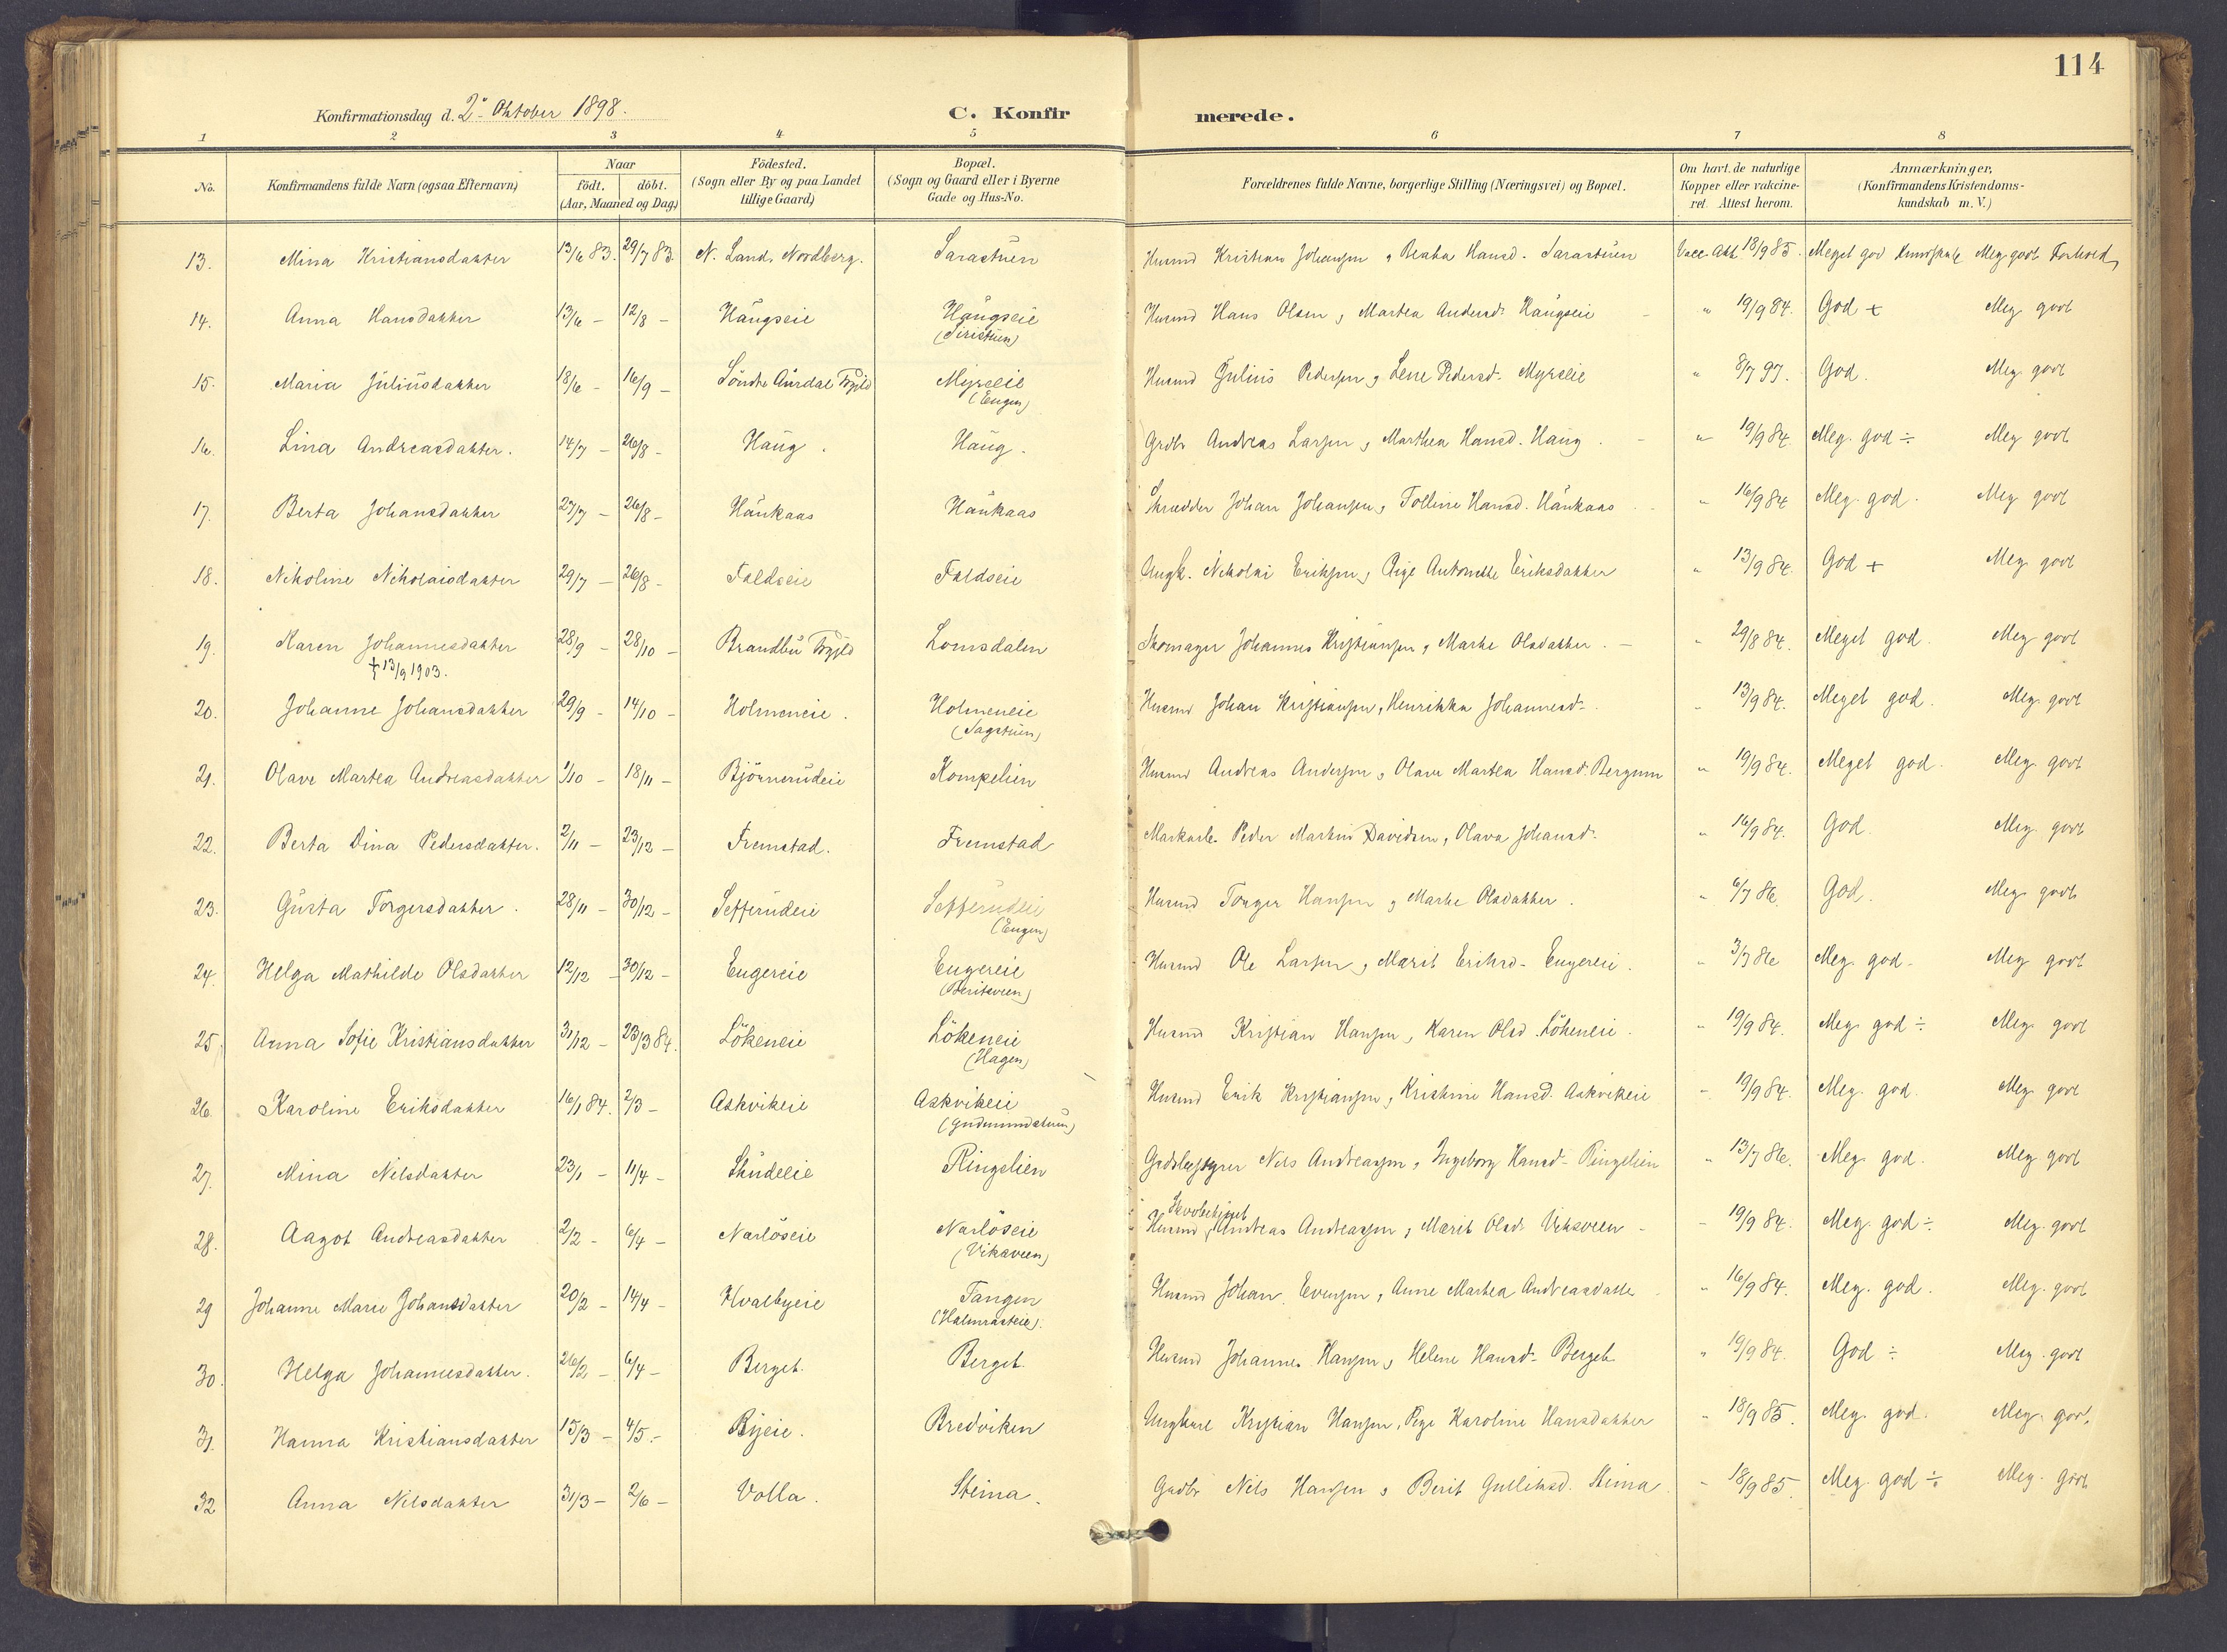 114
Konfirmationsdag d. 2den Oktober 1898.
C. Konfirmerede.
1 2 3 4 5 6 7 8
No. Konfirmandens fulde Navn (ogsaa Efternavn) Naar födt. döbt. (Aar, Maaned og Dag) Födested. (Sogn eller By og paa Landet tillige Gaard) Bopæl. (Sogn og Gaard eller i Byerne Gade og Hus-No. Forældrenes fulde Navne, borgerlige Stilling (Næringsvei) og Bopæl. Om havt de naturlige Kopper eller vakcineret. Attest herom. Anmærkninger, (Konfirmandens Kristendomskundskab m. V.)
13. Mina Kristiansdatter 13/6 83. 29/7 83. N. Land, Nordberg. Sarastuen Husmd Kristian Johansen, Beata Hansd. Sarastuen Vacc. Att. 18/9 85. Meget god Kundskab Meg. godt Forhold
14. Anna Hansdatter 13/6 – 12/8 – Haugseie Haugseie Husmd Hans Olsen, Martea Andersd. Haugseie " 19/9 84. God + Meg. godt
(Siristuen)
15. Maria Juliusdatter 18/6 – 16/9 – Söndre Aurdal Myrseie Husmd Julius Pedersen, Lene Pedersd. Myrseie " 8/7 97. God. Meg. godt
(Engen)
16. Lina Andreasdatter. 14/7 – 26/8 – Haug. Haug. Grdbr Andreas Larsen, Marthea Hansd. Haug. " 19/9 84. Meg. god ÷ Meg. godt
17. Berta Johansdatter 27/7 – 26/8 – Haukaas Haukaas Skrædder Johan Johansen, Folline Hansd. Haukaas " 16/9 84 Meg. god. Meg. godt
18. Nikoline Nikolaisdatter 29/7 – 26/8 – Faldseie Faldseie Ungk. Nikolai Eriksen, Pige Antonette Eriksdatter " 13/9 84. God + Meg. godt
19. Karen Johannesdatter 28/9 – 28/10 – Brandbu Lomsdalen Skomager Johannes Kristiansen, Marte Olsdatter. – " 29/8 84. Meget god. Meg. godt
† 13/9 1903.
20. Johanne Johansdatter 29/9 – 14/10 – Holmeneie. Holmeneie Husmd Johan Kristiansen, Henrikka Johannesd. " 13/9 84. Meget god. Meg. godt
(Sagstuen)
21. Olave Martea Andreasdatter 1/10 – 18/11 – Björnerudeie Kompelien Husmd Andreas Andersen, Olave Martea Hansd. Bergum " 19/9 84. Meget god. Meg. godt
22. Berta Dina Pedersdatter. 2/11 – 23/12 – Fremstad. Fremstad Markarb. Peder Martin Davidsen, Olava Johansd. " 16/9 84. God. Meg. godt
23. Gusta Torgersdatter. 28/11 – 30/12 – Sefferudeie Sefferudeie Husmd Torger Hansen, Marte Olsdatter. " 6/7 86. God. Meg. godt
(Engen)
24. Helga Mathilde Olsdatter 12/12 – 30/12 – Eugereie Eugereie Husmd Ole Larsen, Marit Eriksd. Eugereie. " 3/7 86 Meg. god. Meg. godt
(Beritsveen)
25. Anna Sofie Kristiansdatter 31/12 – 23/3 84. Lökeneie Lökeneie Husmd Kristian Hansen, Karen Olsd. Lökeneie. " 19/9 84. Meg. god ÷ Meg. godt
(Hagen)
26. Karoline Eriksdatter 16/1 84. 2/3 – Askvikeie Askvikeie Husmd Erik Kristiansen, Kristine Hansd. Askvikeie " 19/9 84. Meg. god. Meg. godt
(Gudmundstuen)
27. Mina Nilsdatter 23/1 – 11/4 – Skudeleie Ringelien Nils Andreassen, Ingeborg Hansd. Ringelien " 13/7 86. Meg. god. Meg. godt
28. Aagot Andreasdatter 2/2 – 6/4 – Narlöseie Narlöseie Husmd Andreas Andreassen, Marit Olsd. Viksveen – " 19/9 84. Meg. god ÷ Meg. godt
(Viksveen)
29 Johanne Marie Johansdatter 20/2 – 14/4 – Hvalbyeie Tangen Husmd Johan Evensen, Anne Martea Andreasdatter " 16/9 84. Meg. god. Meg. godt
(Halmrasteie).
30. Helga Johannesdatter. 26/2 – 6/4 – Berget. Berget. Husmd Johannes Hansen, Helene Hansd. Berget " 19/9 84. God ÷ Meg. godt
31. Hanna Kristiansdatter 15/3 – 4/5. – Byeie. Bredviken Ungkarl Kristian Hansen, Pige Karoline Hansdatter " 18/9 85. Meg. god. Meg. godt
32 Anna Nilsdatter 31/3 – 2/6 – Volla. Steina. Gaardbr Nils Hansen, Berit Gulliksd. Steina " 18/9 85. Meg. god ÷ Meg. godt